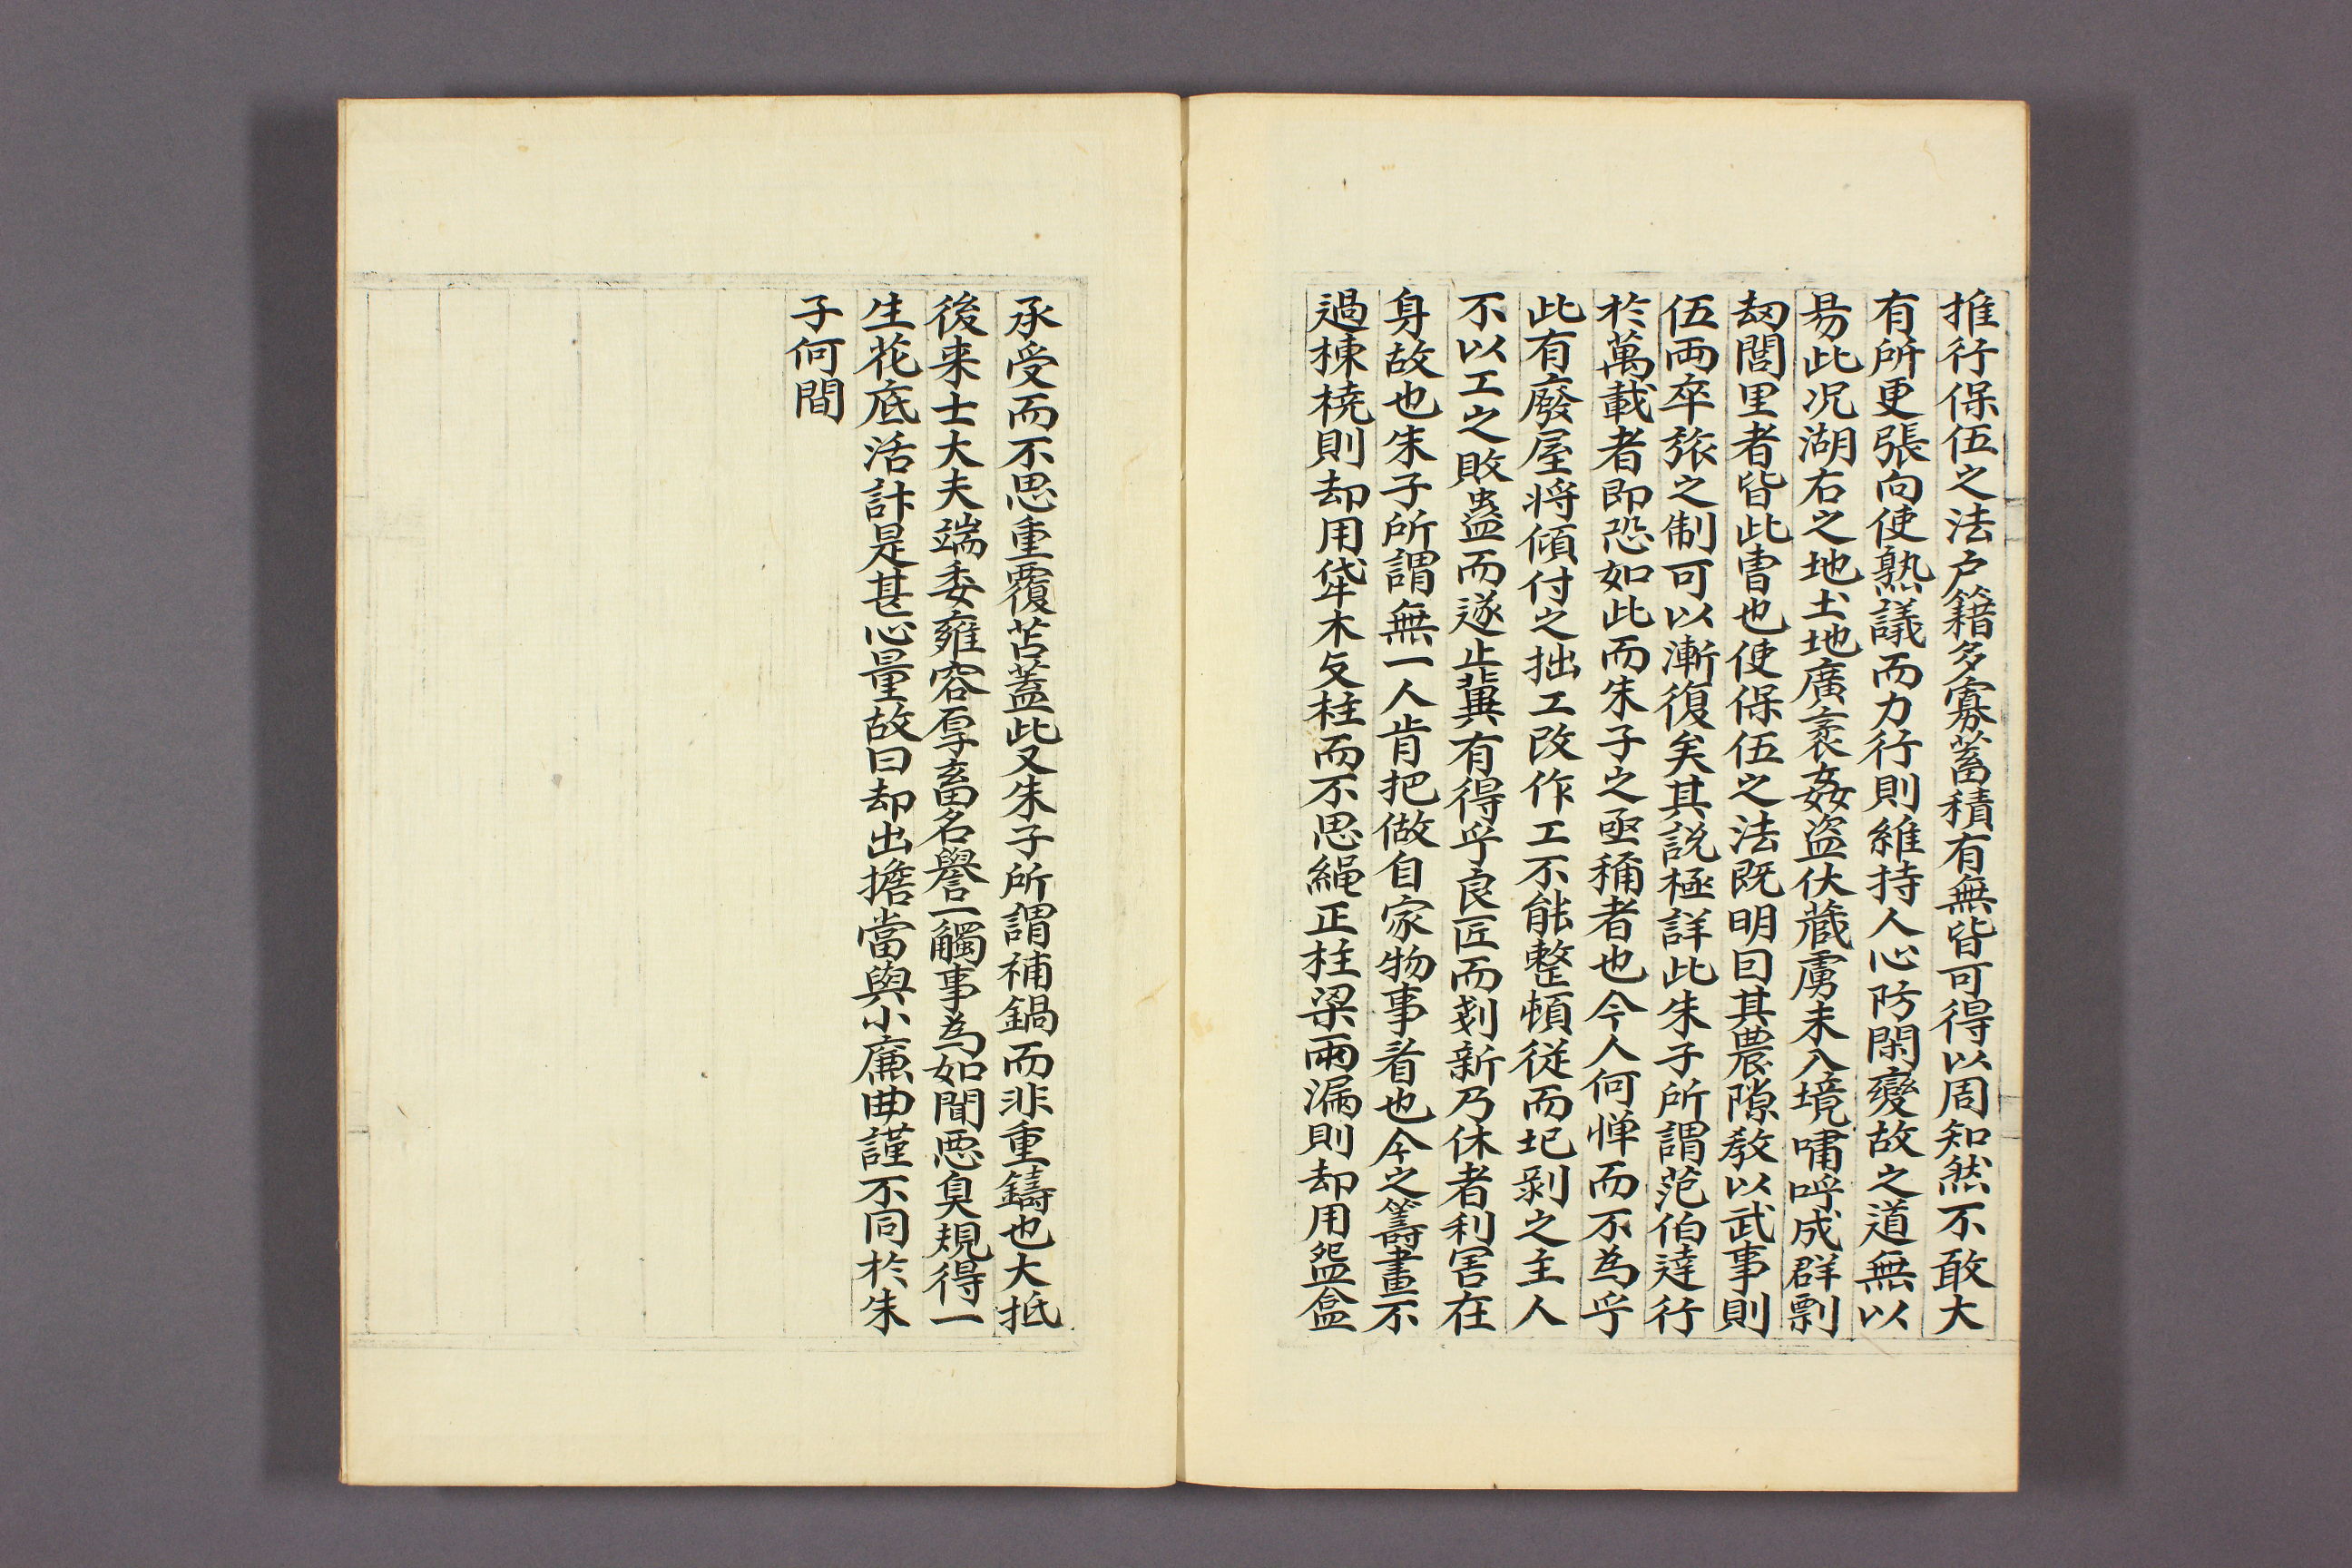 推行保伍之法户籍多寡蓄積有無皆可得以周知然不敢大
有所更張向使熟議而力行則維持人心防閑變故之道無以
易此况湖右之地土地廣袤姦盗伏蔵虜未入境嘯呼成群剽
刼閭里者皆此曺也使保伍之法既明因其農隙教以武事則
伍兩卒旅之制可以漸復矣其説極詳此朱子所謂范伯達行
於萬載者即恐如此而朱子之亟稱者也今人何憚而不為乎
此有廢屋将傾付之拙工改作工不能整頓從而圮剥之主人
不以工之敗蠱而遂止冀有得乎良匠而剗新乃休者利害在
身故也朱子所謂無一人肯把做自家物事着也今之籌畫不
過棟橈則却用牮木攴柱而不思繩正柱梁雨漏則却用盌盒
承受而不思重覆苫蓋此又朱子所謂補鍋而非重鑄也大抵
後来士大夫端委雍容厚畜名譽一觸事為如聞惡臭規得一
生花底活計是甚心量故曰却出擔當與小廉曲謹不同於朱
子何間